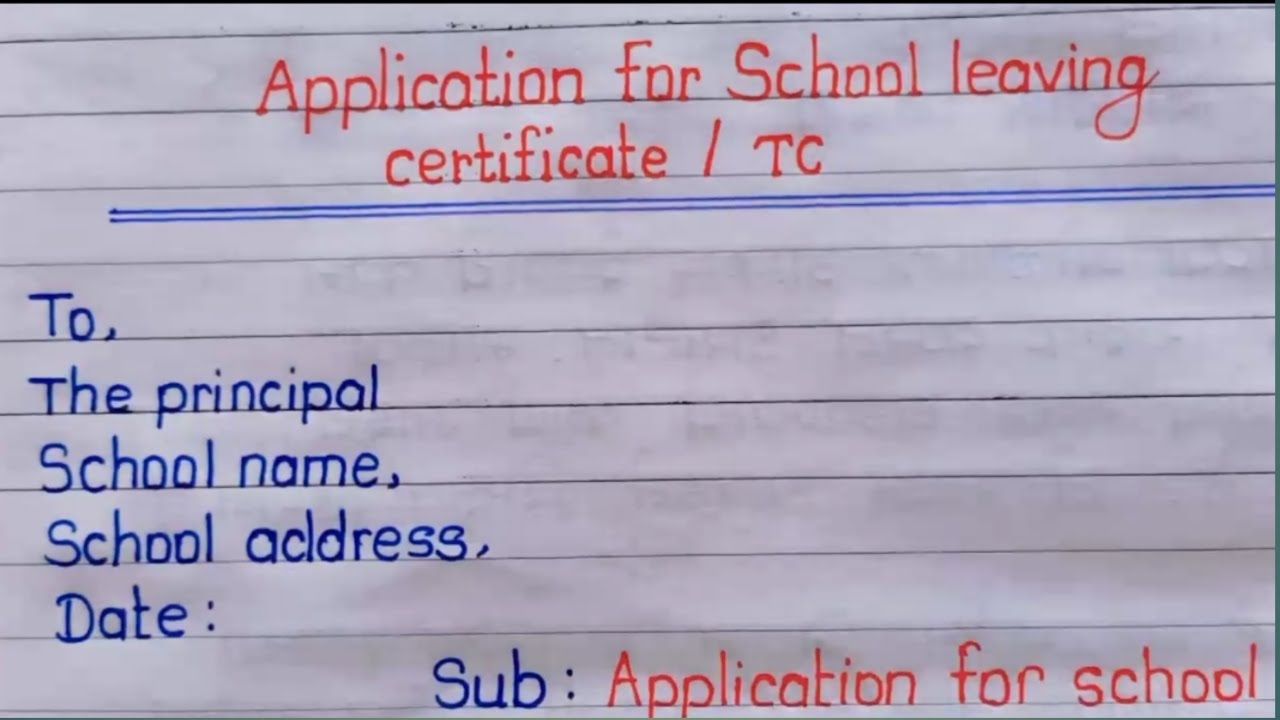 Application for School leaving
certificate / TC
To,
The principal
School name,
School address,
Date :
Sub : Application for school